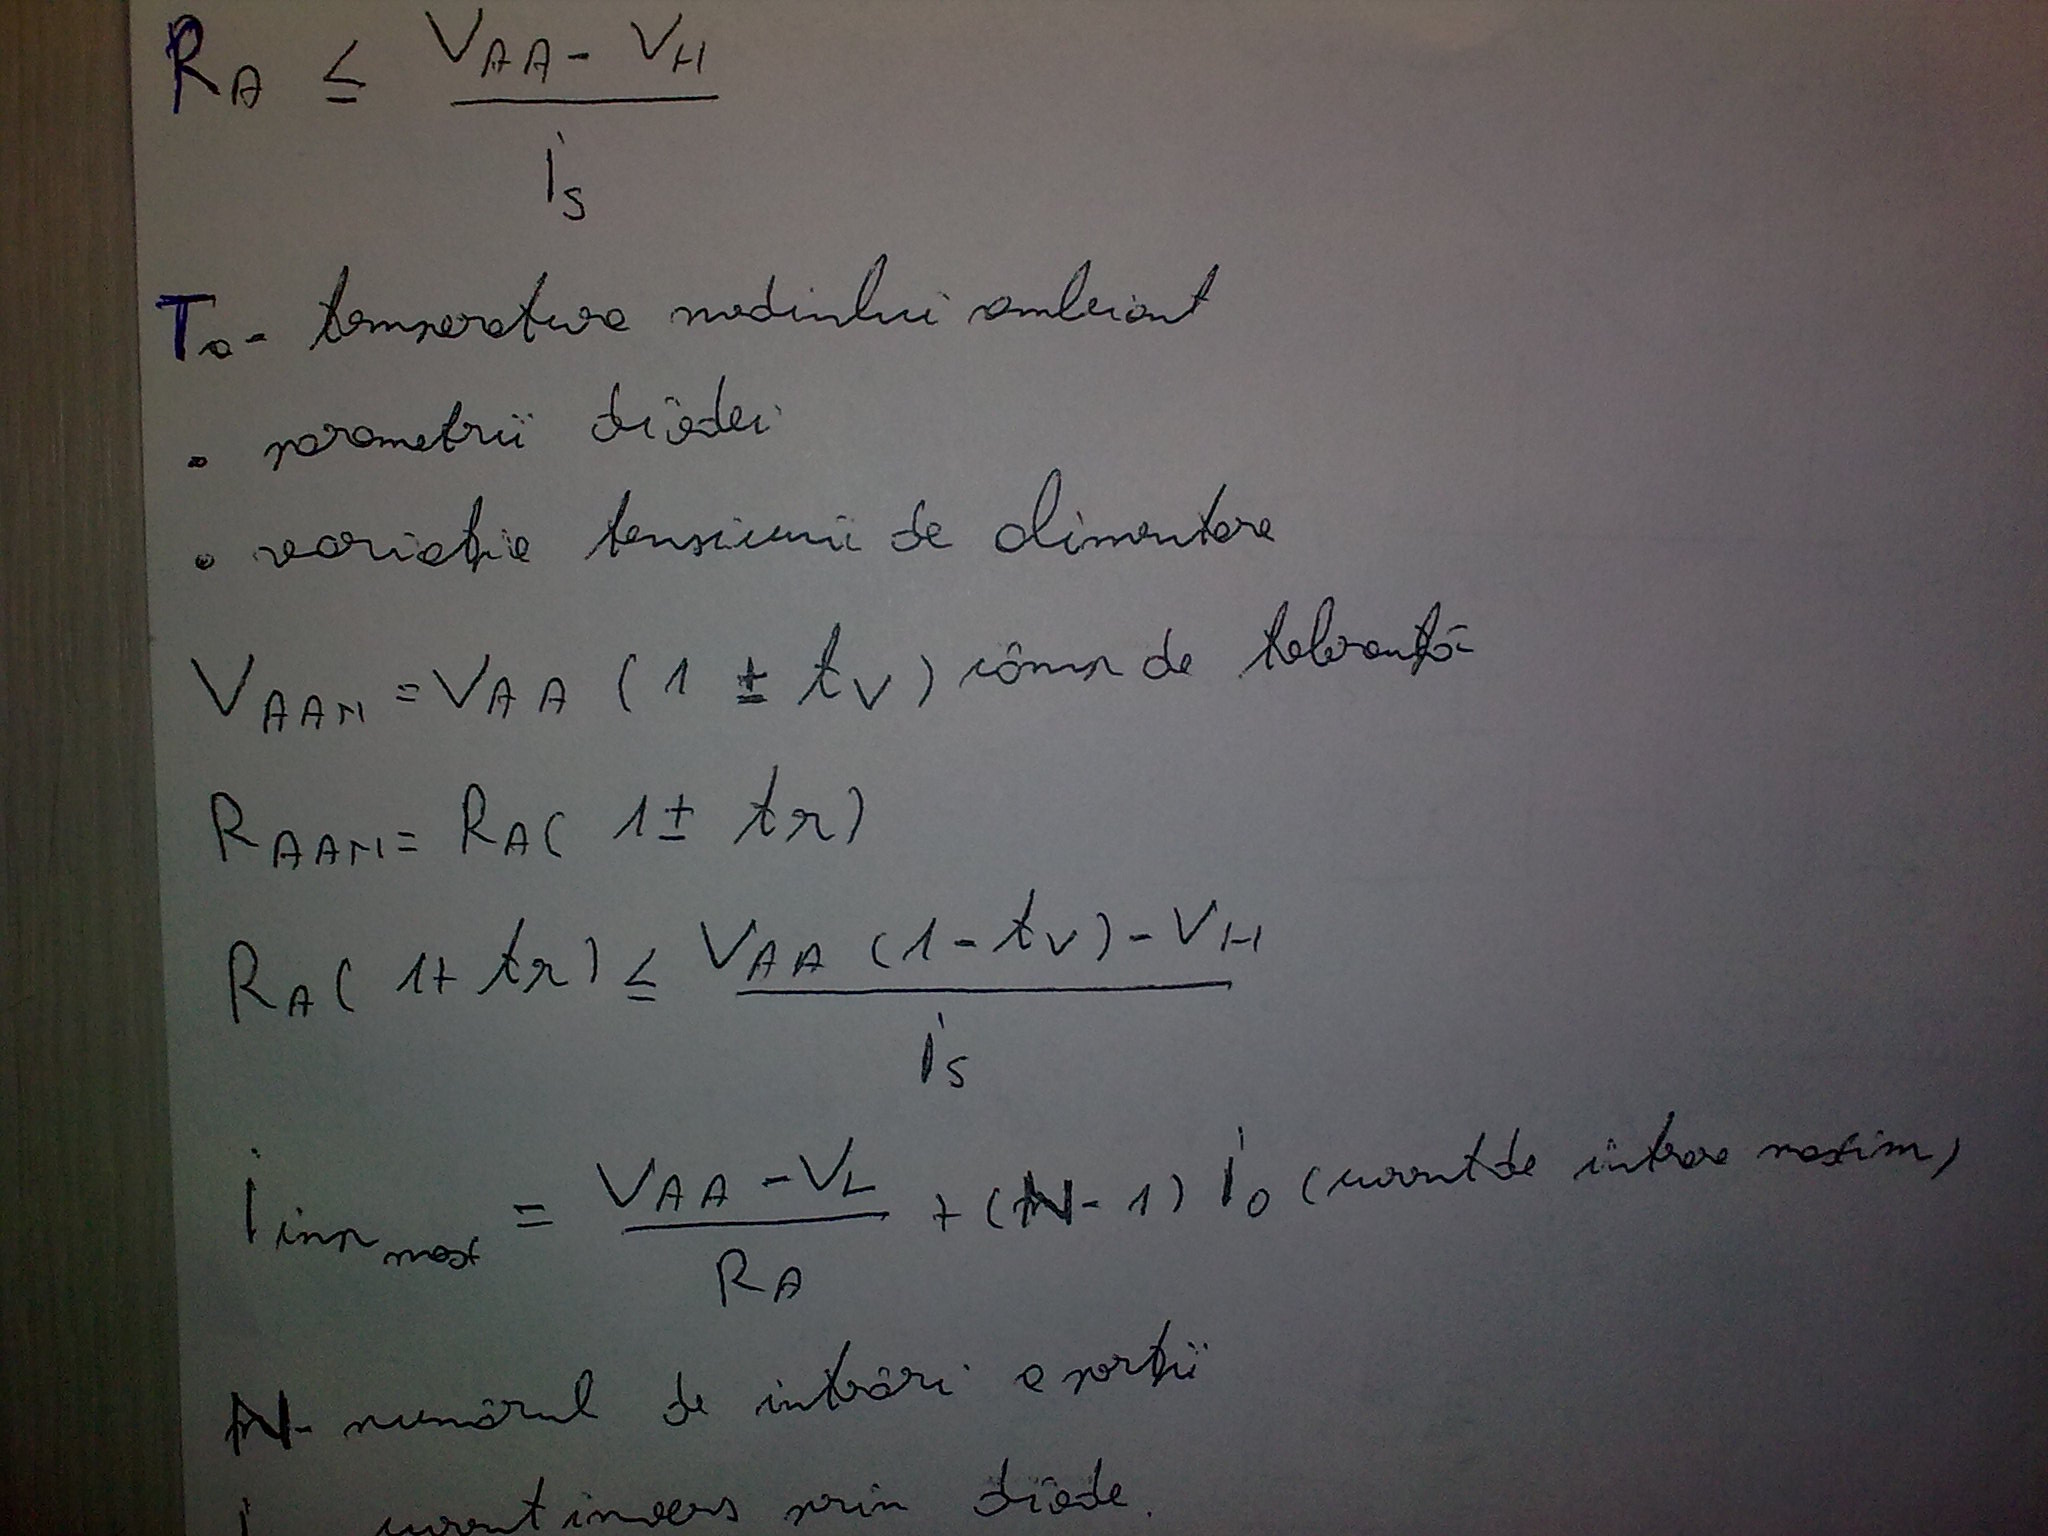 R_A ≤ (V_AA - V_H) / i_s
T_a - temperatura mediului ambiant
• parametrii diodei
• variația tensiunii de alimentare
V_AAM = V_AA (1 ± t_V) câmp de toleranță
R_AAM = R_A ( 1 ± tr)
R_A ( 1+ tr) ≤ (V_AA (1 - t_V) - V_H) / i_s
i_inp max = (V_AA - V_L) / R_A + (N - 1) i_0 (curent de intrare maxim)
N - numărul de intrări a porții
i curent invers prin diode.